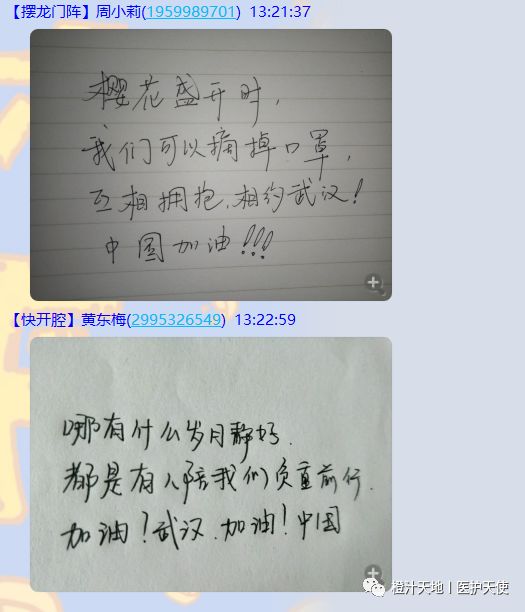 【摆龙门阵】周小莉(1959989701) 13:21:37
樱花盛开时,
我们可以摘掉口罩,
互相拥抱,相约武汉!
中国加油!!!
【快开腔】黄东梅(2995326549) 13:22:59
哪有什么岁月静好.
都是有人陪我们负重前行.
加油!武汉.加油!中国
橙汁天地丨医护天使